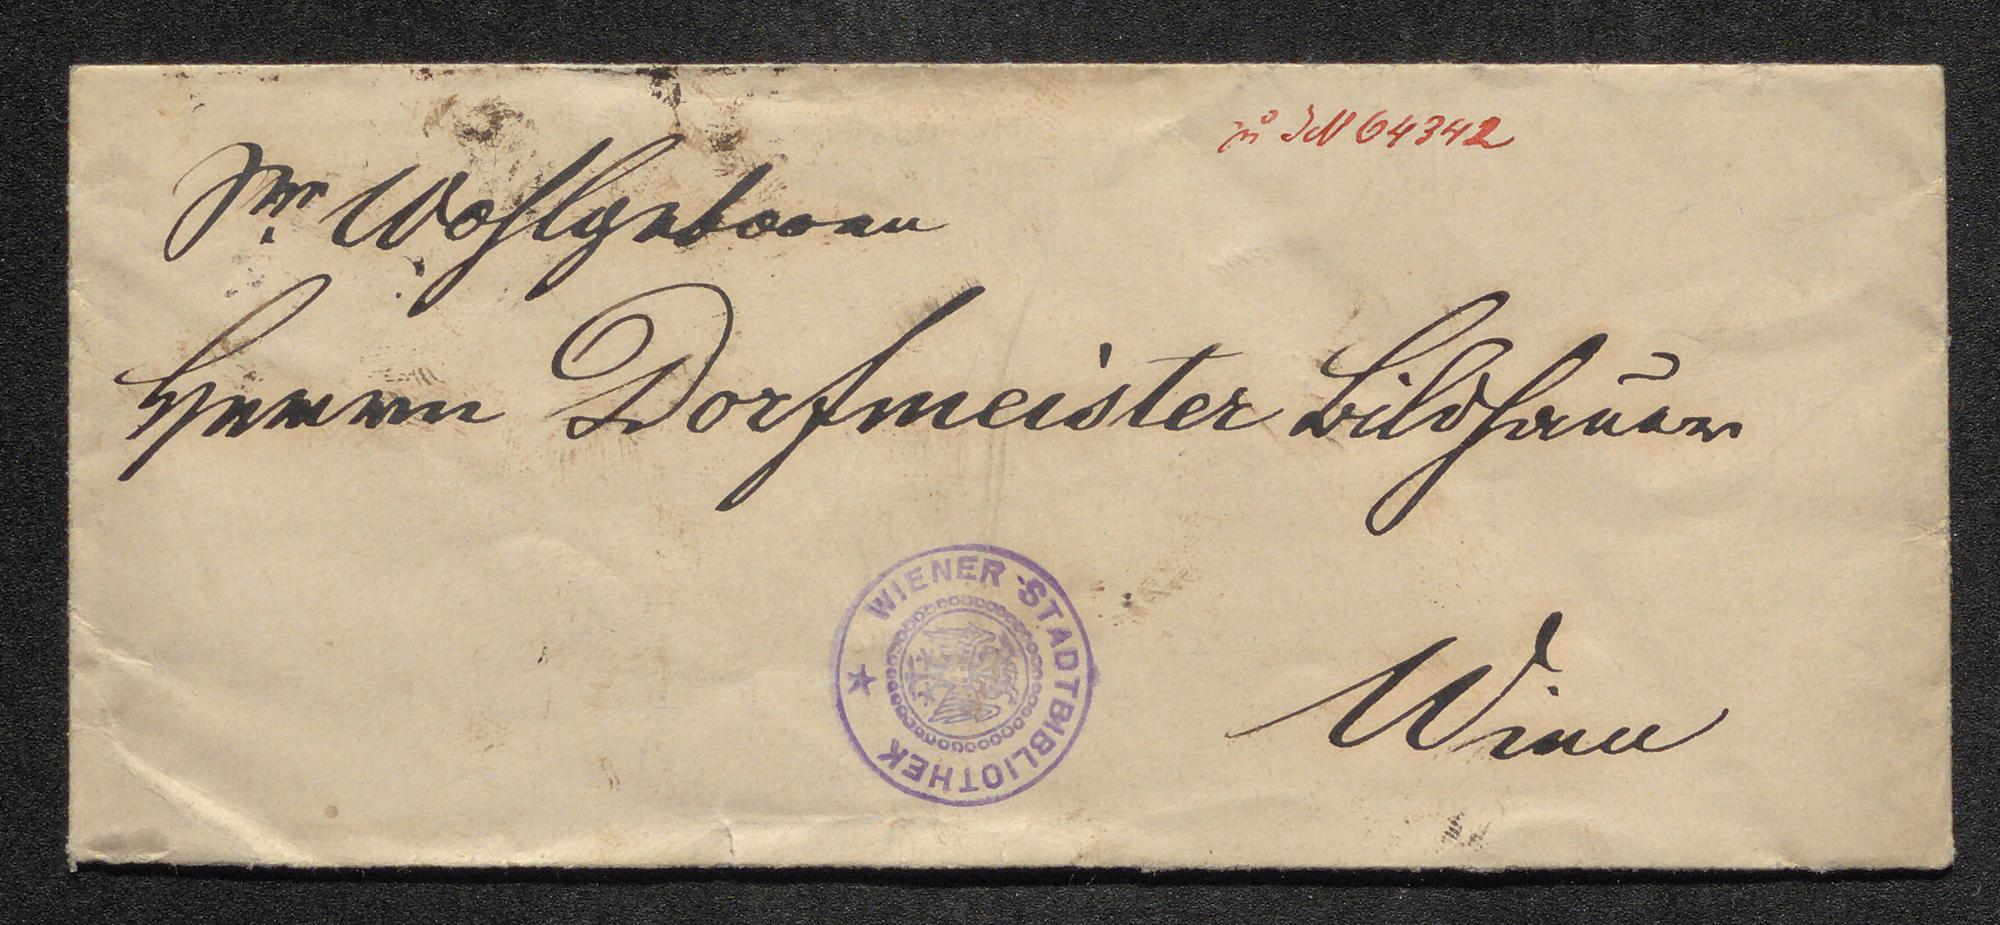 zu IN 64342
Sr. Wohlgeboren
Herrn Dorfmeister Bildhauer
Wien
WIENER STADTBIBLIOTHEK